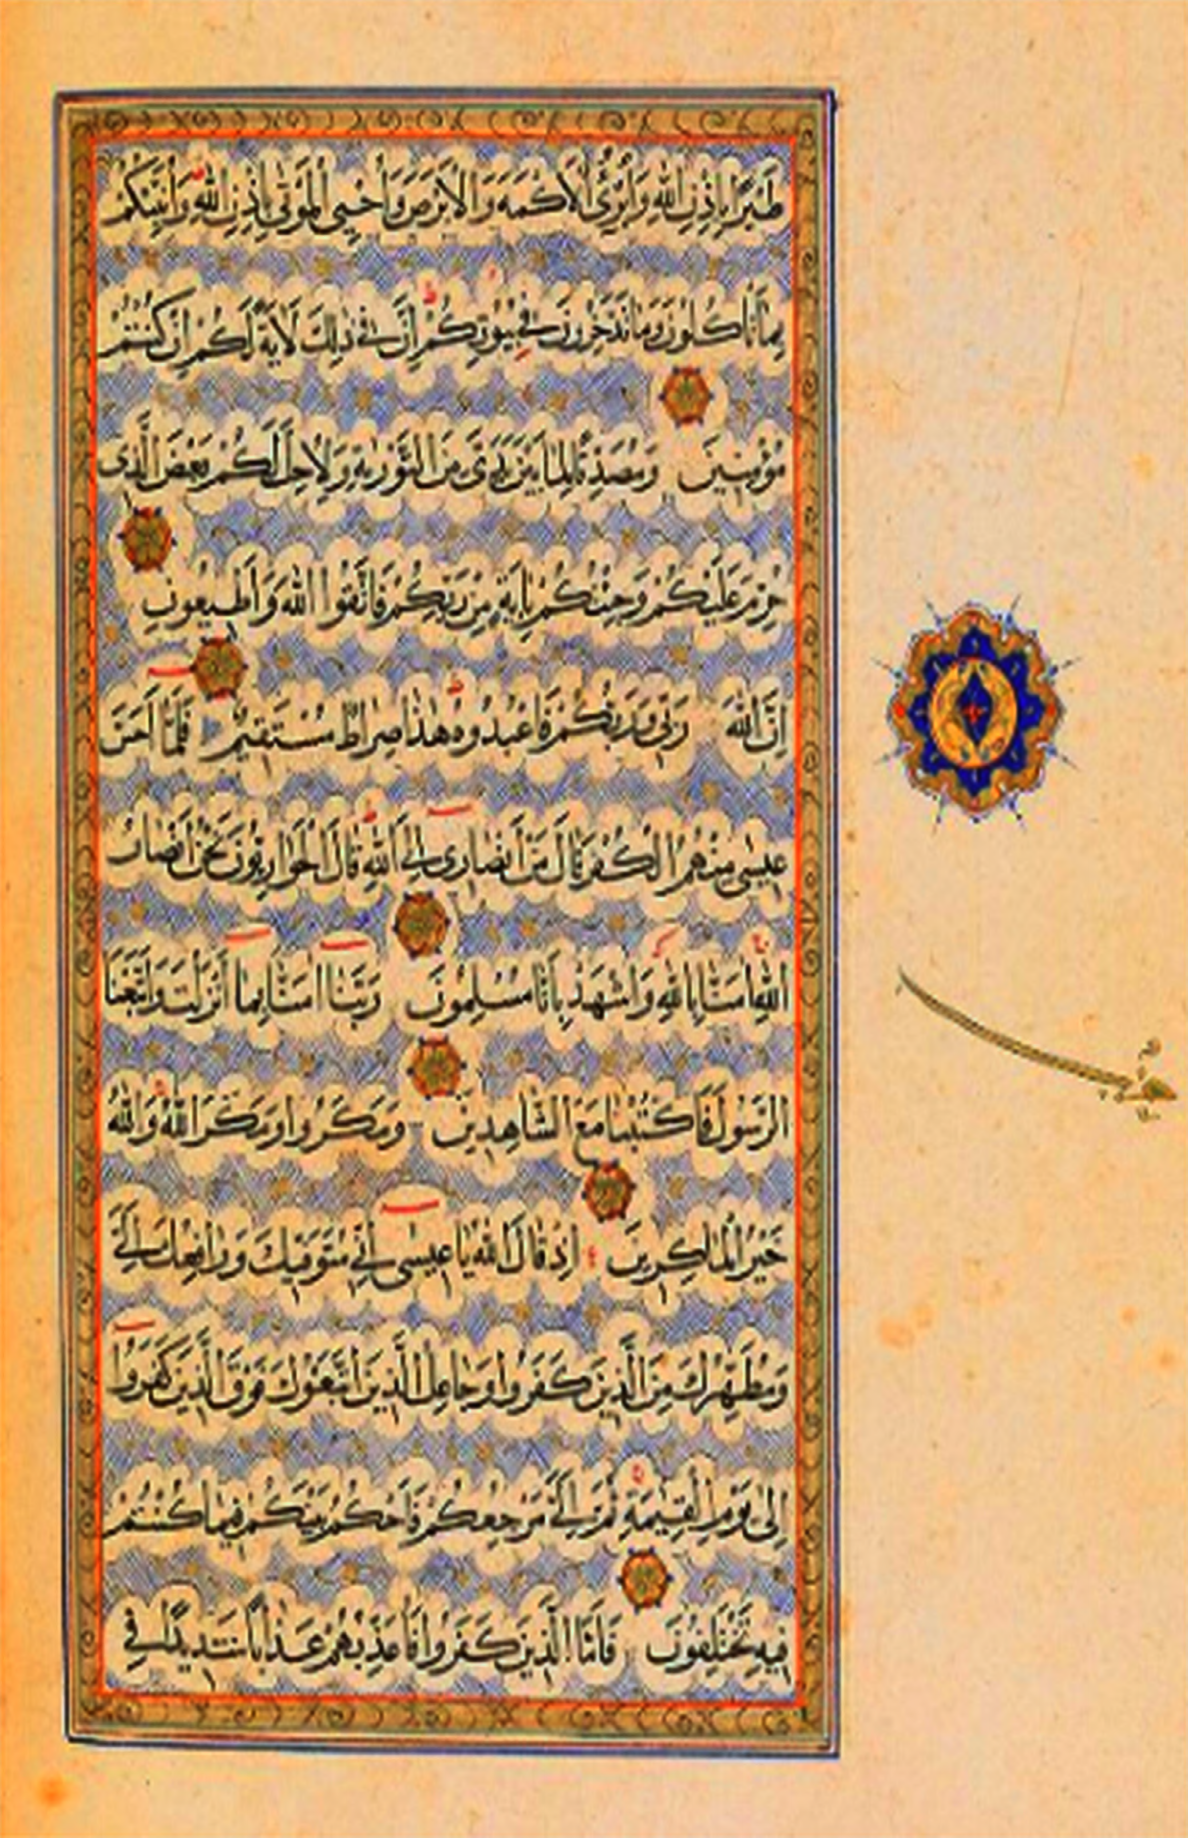 طَيْرًا بِاِذْنِ اللّٰهِ وَاُبْرِئُ الْاَكْمَهَ وَالْاَبْرَصَ وَاُحْيِى الْمَوْتٰى بِاِذْنِ اللّٰهِ وَاُنَبِّئُكُمْ
بِمَا تَاْكُلُونَ وَمَا تَدَّخِرُونَ فِى بُيُوتِكُمْ اِنَّ فِى ذٰلِكَ لَاٰيَةً لَكُمْ اِنْ كُنْتُمْ
مُؤْمِنِينَ وَمُصَدِّقًا لِمَا بَيْنَ يَدَىَّ مِنَ التَّوْرٰيةِ وَلِاُحِلَّ لَكُمْ بَعْضَ الَّذِى
حُرِّمَ عَلَيْكُمْ وَجِئْتُكُمْ بِاٰيَةٍ مِنْ رَبِّكُمْ فَاتَّقُوا اللّٰهَ وَاَطِيعُونِ
اِنَّ اللّٰهَ رَبِّى وَرَبُّكُمْ فَاعْبُدُوهُ هٰذَا صِرَاطٌ مُسْتَقِيمٌ فَلَمَّا اَحَسَّ
عِيسٰى مِنْهُمُ الْكُفْرَ قَالَ مَنْ اَنْصَارِى اِلَى اللّٰهِ قَالَ الْحَوَارِيُّونَ نَحْنُ اَنْصَارُ
اللّٰهِ اٰمَنَّا بِاللّٰهِ وَاشْهَدْ بِاَنَّا مُسْلِمُونَ رَبَّنَا اٰمَنَّا بِمَا اَنْزَلْتَ وَاتَّبَعْنَا
الرَّسُولَ فَاكْتُبْنَا مَعَ الشَّاهِدِينَ وَمَكَرُوا وَمَكَرَ اللّٰهُ وَاللّٰهُ
خَيْرُ الْمَاكِرِينَ اِذْ قَالَ اللّٰهُ يَا عِيسٰى اِنِّى مُتَوَفِّيكَ وَرَافِعُكَ اِلَىَّ
وَمُطَهِّرُكَ مِنَ الَّذِينَ كَفَرُوا وَجَاعِلُ الَّذِينَ اتَّبَعُوكَ فَوْقَ الَّذِينَ كَفَرُوا
اِلٰى يَوْمِ الْقِيٰمَةِ ثُمَّ اِلَىَّ مَرْجِعُكُمْ فَاَحْكُمُ بَيْنَكُمْ فِيمَا كُنْتُمْ
فِيهِ تَخْتَلِفُونَ فَاَمَّا الَّذِينَ كَفَرُوا فَاُعَذِّبُهُمْ عَذَابًا شَدِيدًا فِى